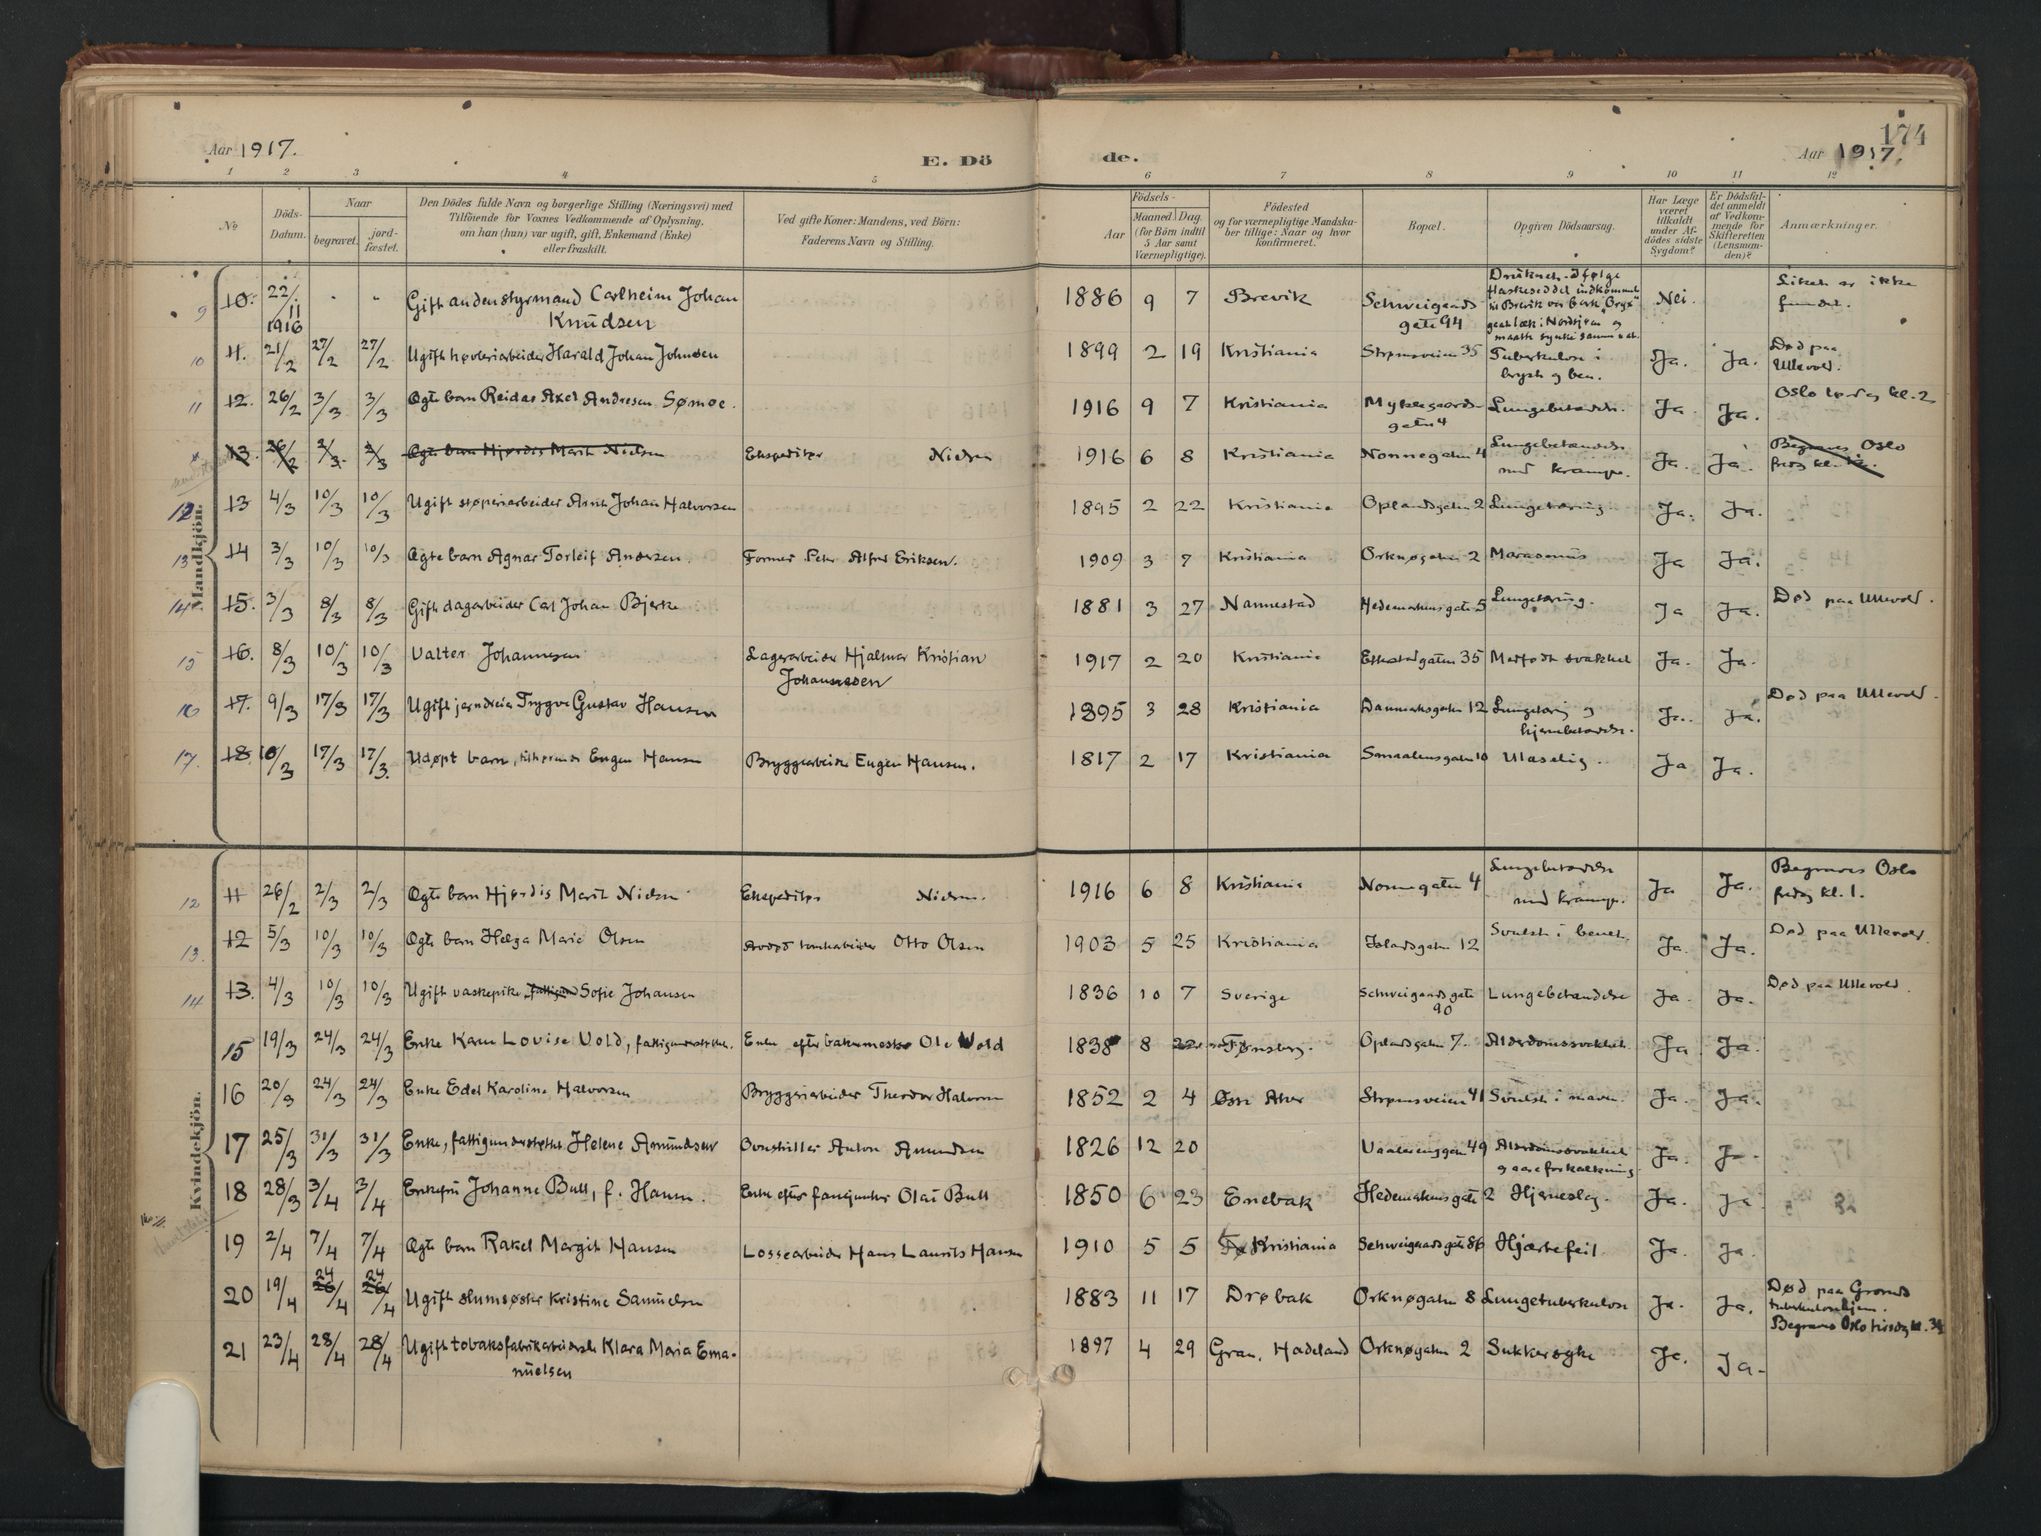 174
Aar 1917.
E. Dö
de.
Aar 1917.
1 2 3 4 5 6 7 8 9 10 11 12
№
Döds-Datum.
Naar
begravet.
jord-fæstet.
Den Dödes fulde Navn og borgerlige Stilling (Næringsvei) med
Tilföiende for Voxnes Vedkommende af Oplysning,
om han (hun) var ugift, gift, Enkemand (Enke)
eller fraskilt.
Ved gifte Koner: Mandens, ved Börn:
Faderens Navn og Stilling.
Födsels-
Aar
Maaned. Dag.
(for Börn indtil
5 Aar samt
Værnepligtige).
Födested
og for værnepligtige Mandska-
ber tillige: Naar og hvor
konfirmeret.
Bopæl.
Opgiven Dödsaarsag.
Har Læge
været
tilkaldt
under Af-
dödes sidste
Sygdom?
Er Dödsfal-
det anmeldt
af Vedkom-
mende for
Skifteretten
(Lensman-
den)?
Anmærkninger.
Mandkjön.
9 10. 22/11 1916 " " Gift andenstyrmand Carlheim Johan Knudsen 1886 9 7 Brevik Schweigaards gate 94 Druknet. Ifølge flaskeseddel indkommet til Brevik var bark "Bryx" læk i Nordsjøen og maatte synke Nei Liket er ikke fundet.
10 11. 21/2 27/2 27/2 Ugift høvleriarbeider Harald Johan Johnsen 1899 2 19 Kristiania Strømsveien 35 Tuberkulose i bryst og ben. Ja. Ja. Død paa Ullevold.
11 12. 26/2 3/3 3/3 Ægte barn Reidar Axel Andresen Sømoe. 1916 9 7 Kristiania Lungebetændelse. Ja. Ja. Oslo kl. 2
13. 26/2 2/3 2/3 Ægte barn Hjørdis Marit Nielsen Ekspeditør Nielsen 1916 6 8 Kristiania Nonnegaten 4 Lungebetændelse med krampe. Ja. Ja. Begraves Oslo fredag kl.
12 13 4/3 10/3 10/3 Ugift støperiarbeider Arnt Johan Halvorsen 1895 2 22 Kristiania Oplandsgaten 2 Lungetæring. Ja. Ja.
13 14 3/3 10/3 10/3 Ægte barn Agnar Torleif Andersen. Former Peter Alfred Eriksen. 1909 3 7 Kristiania Orknøgaten 2 Marasmus Ja Ja.
14 15. 3/3 8/3 8/3 Gift dagarbeider Carl Johan Bjerke 1881 3 27 Nannestad Hedemarkens gate 5 Lungetæring. Ja Ja. Død paa Ullevold.
15 16. 8/3 10/3 10/3 Valter Johannesen Lagerarbeider Hjalmar Kristian Johannesen 1917 2 20 Kristiania 35 Medfødt svakhet Ja. Ja.
16 17. 9/3 17/3 17/3 Ugift jerndreier Trygve Gustav Hansen 1895 3 28 Kristiania Danmarksgaten 12 Lungetæring og hjernebetændelse. Ja. Ja. Død paa Ullevold.
17. 18. 10/3 17/3 17/3. Udøpt barn, tilhørende Eugen Hansen Bryggearbeider Eugen Hansen. 1817 2 17 Kristiania Smaalensgaten 10 Ulæselig. Ja Ja.
Kvindekjön.
12 11 26/2 2/3 2/3 Ægte barn Hjørdis Marit Nielsen Ekspeditør Nielsen. 1916 6 8 Kristiania Nonnegaten 4 Lungebetændelse med krampe. Ja Ja. Begraves Oslo fredag kl. 1.
13. 12 5/3 10/3 10/3 Ægte barn Helga Marie Olsen Avdød tomtearbeider Otto Olsen 1903 5 25 Kristiania Islandsgaten 12 Svulst i benet. Ja. Ja. Død paa Ullevold.
14 13. 4/3 10/3 10/3 Ugift vaskepike, Sofie Johansen 1836 10 7 Sverige Schweigaards gate 90 Lungebetændelse Ja. Ja. Død paa Ullevold.
15 19/3 24/3 24/3 Enke Karen Lovise Vold, fattigunderstøttet. Enke efter bakermester Ole Wold 1838 8 22 Tønsberg. Oplandsgaten 7. Alderdomssvakhet. Ja. Ja.
16 20/3 24/3 24/3 Enke Edel Karoline Halvorsen Bryggeriarbeider Theodor Halvorsen 1852 2 4 Østre Aker Strømsveien 41 Svulst i maven. Ja. Ja.
17 25/3 31/3 31/3 Enke, fattigunderstøttet Helene Amundsen Ovnstiller Anton Amundsen 1826 12 20 Vaalerenggaten 49 Alderdomssvakhet og aareforkalkning. Ja. Ja.
18 28/3 3/4 3/4 Enkefru Johanne Bull, f. Hansen. Enke efter fanejunker Olai Bull 1850 6 23 Enebak Hedemarkens gate 2 Hjerneslag. Ja. Ja
19 2/4 7/4 7/4 Ægte barn Rakel Margit Hansen Lossearbeider Hans Laurits Hansen 1910 5 5 Kristiania Schweigaards gate 86 Hjærtefeil. Ja. Ja.
20 19/4 24/4 24/4 Ugift slumsøster Kristine Samuelsen 1883 11 17 Drøbak Orknøgaten 8 Lungetuberkulose Ja. Ja. Død paa Grorud tuberkulosehjem. Begraves Oslo tirsdag kl.
21 23/4 28/4 28/4 Ugift tobaksfabrikarbeiderske Klara Maria Ema-
nuelsen 1897 4 29 Gran, Hadeland Orknøgaten 2 Sukkersyke Ja. Ja.